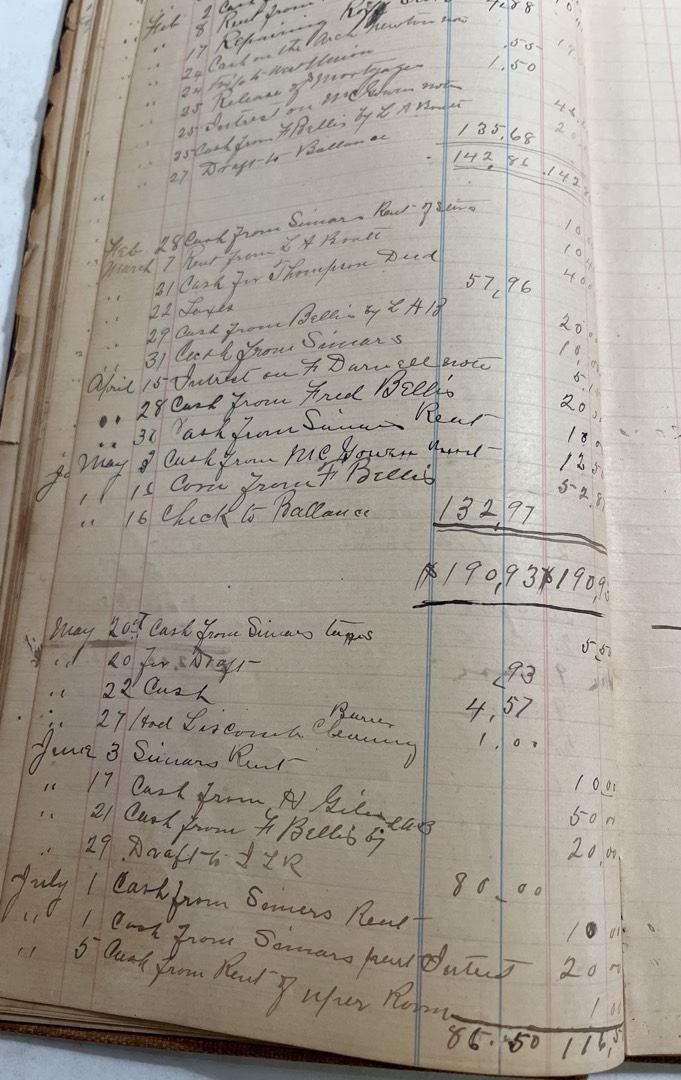 Feb 2 Cash
" 8 Rent from 4.88 10
" 17 Repairing Roof
" 24 Cash on the Arch Newton note
" 24 .55
" 25 Release of 3 Mortgages 1.50
" 25 Intrest on McGowen note
" 25 Cash from F Bellis by L A Boalt 20
" 27 Draft to Ballance 135,68
142,86 142
Feb 28 Cash from Simars Rent of 10
March 7 Rent from L A Boalt 10
" 21 Cash for Thompson Deed 400
" 22 Taxes 57,96
" 29 Cash from Bellis by L A B 20
" 31 Cash from Simars 10
April 15 Intrest on F Darnell note 5
" 28 Cash from Fred Bellis 20
" 30 Cash from Simars Rent 10
May 3 Cash from McGowen 12 50
" 15 Corn from F Bellis 52.8
" 16 Check to Ballance 132,97
$190,93 $190,9
May 20 Cash from Simars 5 50
" 20 for Draft ,93
" 22 Cash 4,57
" 27 Liscomb Cleaning 1.00
June 3 Simars Rent 10 00
" 17 Cash from H 50 00
" 21 Cash from F Bellis by L A B 20,00
" 29 Draft to 80.00
July 1 Cash from Simers Rent 10 00
" 1 Cash from Simars part Intrest 20 00
" 5 Cash from Rent of uper Room 1 00
86.50 116,5